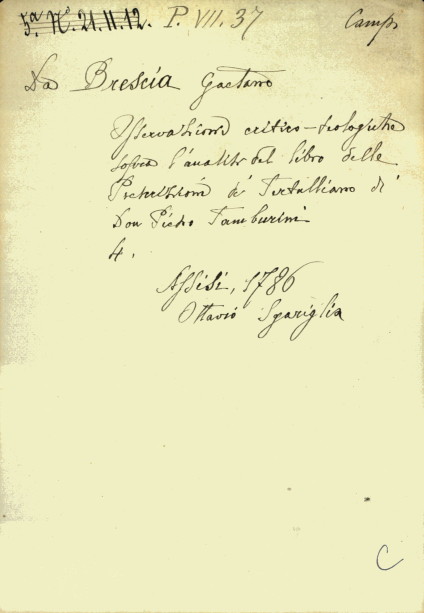 5.ª Nº 21.11.12. P. VII. 37 Camp.
Da Brescia Gaetano
Osservazioni critico-teologiche
sopra l'analisi del libro delle
Prescrizioni di Tertulliano di
Don Pietro Tamburini
4.
Assisi, 1786
Ottavio Sgariglia
C